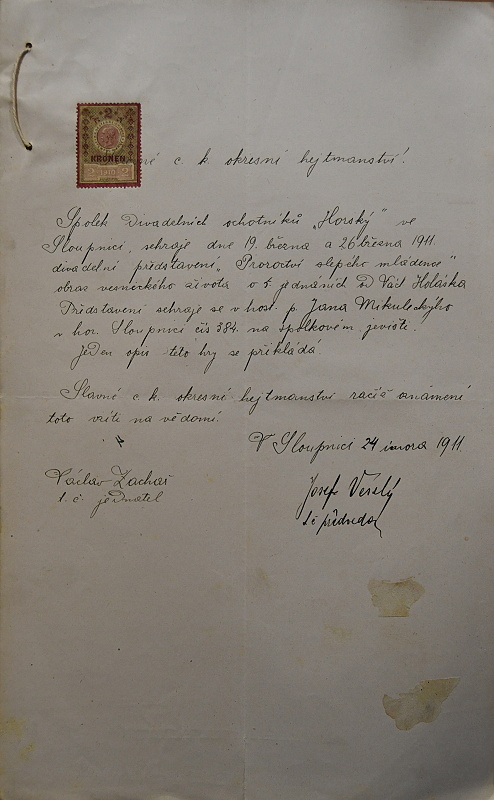 2
KRONEN
2 1910 2
né c. k. okresní hejtmanství!
Spolek Divadelních ochotníků „Horský" ve
Sloupnici, sehraje dne 19. března a 26 března 1911.
divadelní představení „Proroctví slepého mládence"
obraz vesnického života o 5 jednáních od Václ Holáska
Představení sehraje se v host. p. Jana Mikuleckýho
v hor. Sloupnici čís 384. na spolkovém jevišti.
Jeden opis této hry se přikládá.
Slavné c. k. okresné hejtmanství račiž oznámení
toto vzíti na vědomí.
V Sloupnici 24 února 1911.
Václav Zachař
t. č. jednatel
Josef Veselý
t č předseda